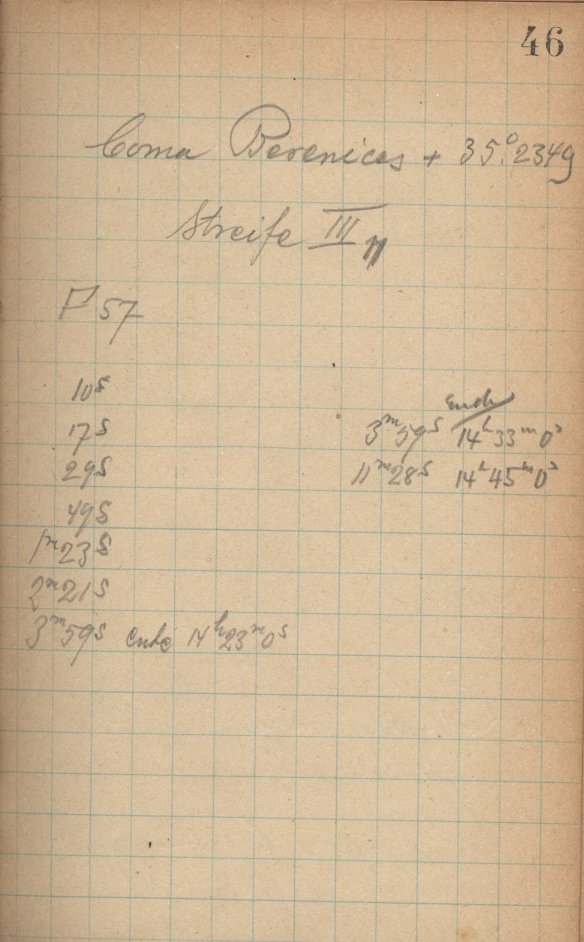 46
Coma Berenices + 35.°2349
Streife III
P 57
10s
17s
29s
49s
1m23s
2m21s
3m59s Ende 14h23m0s
Ende
3m59s 14h33m0s
11m28s 14h45m0s